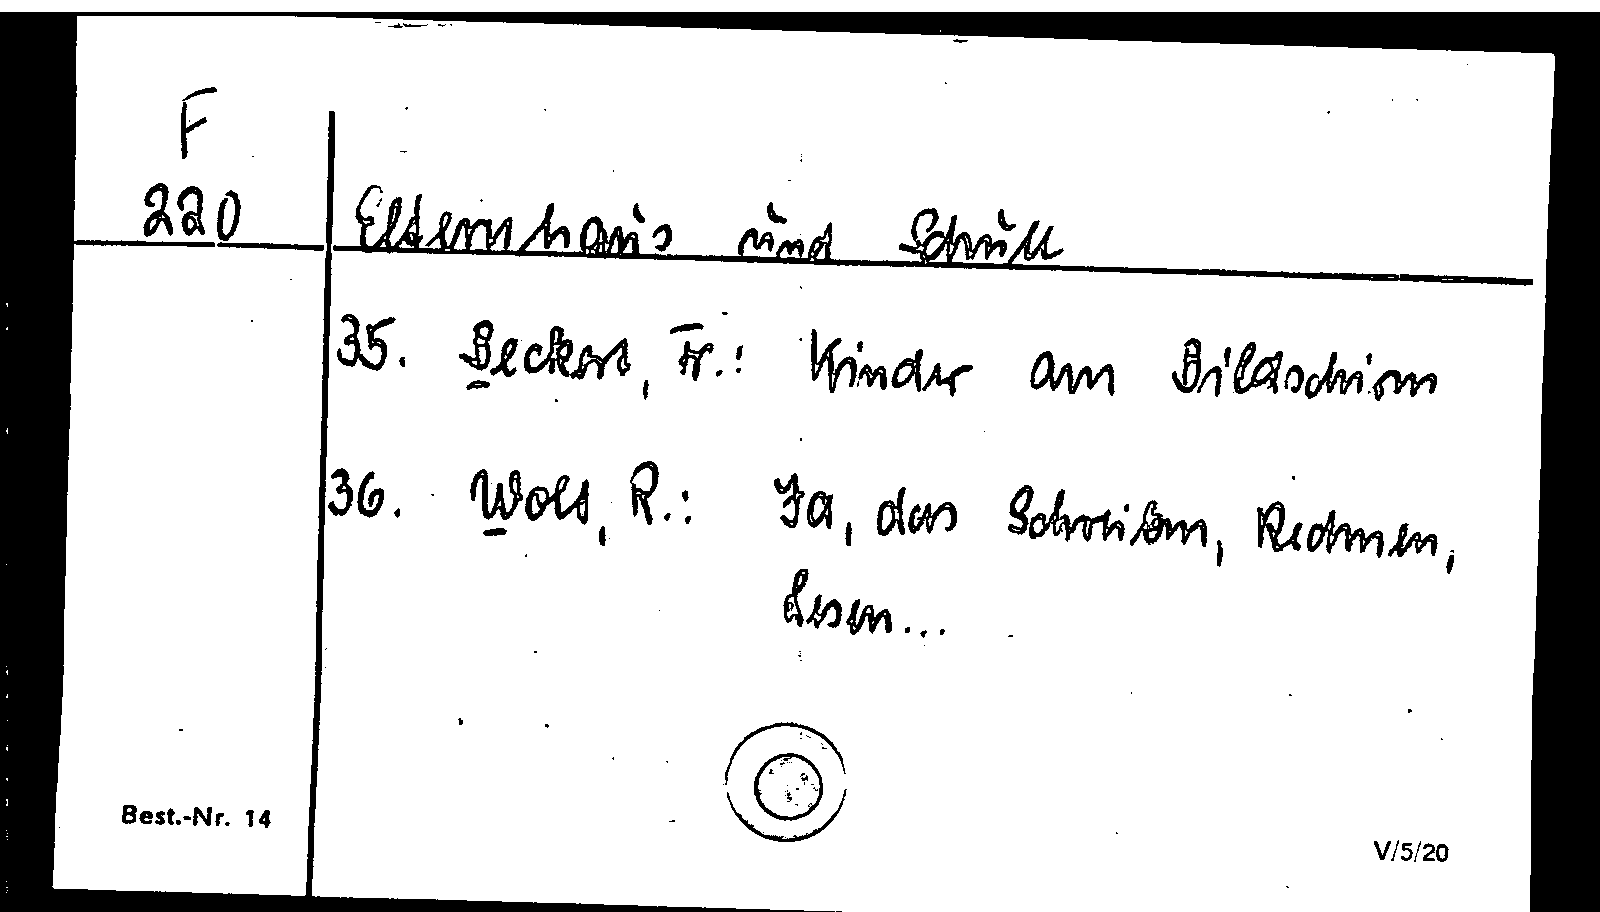 F
220
Elternhaus und Schule
35. Beckert, Fr.: Kinder am Bildschirm
36. Wolf, R.: Ja, das Schreiben, Rechnen,
Lesen...
Best.-Nr. 14
V/5/20